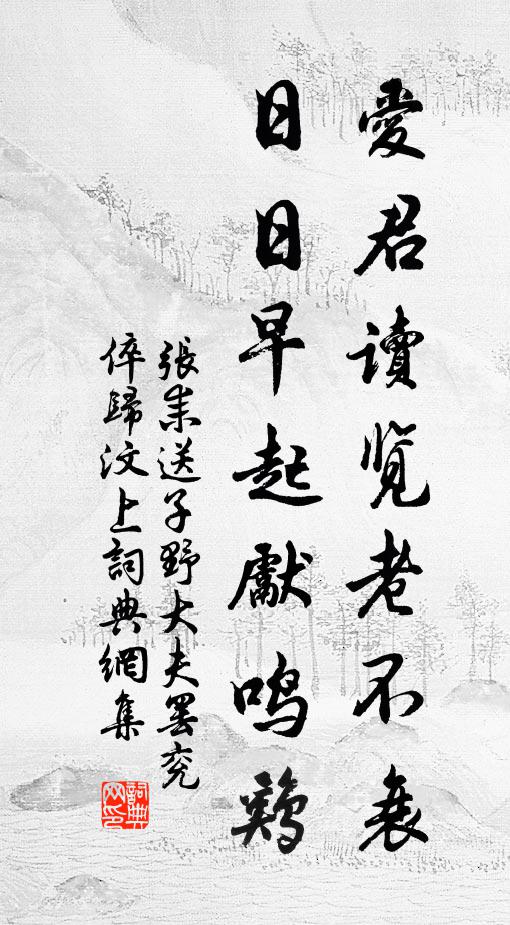 愛君讀覧老不衰
日日早起獻鳴鷄
張耒送子野大夫罷兖
倅歸汶上詞典網集
詞典网印